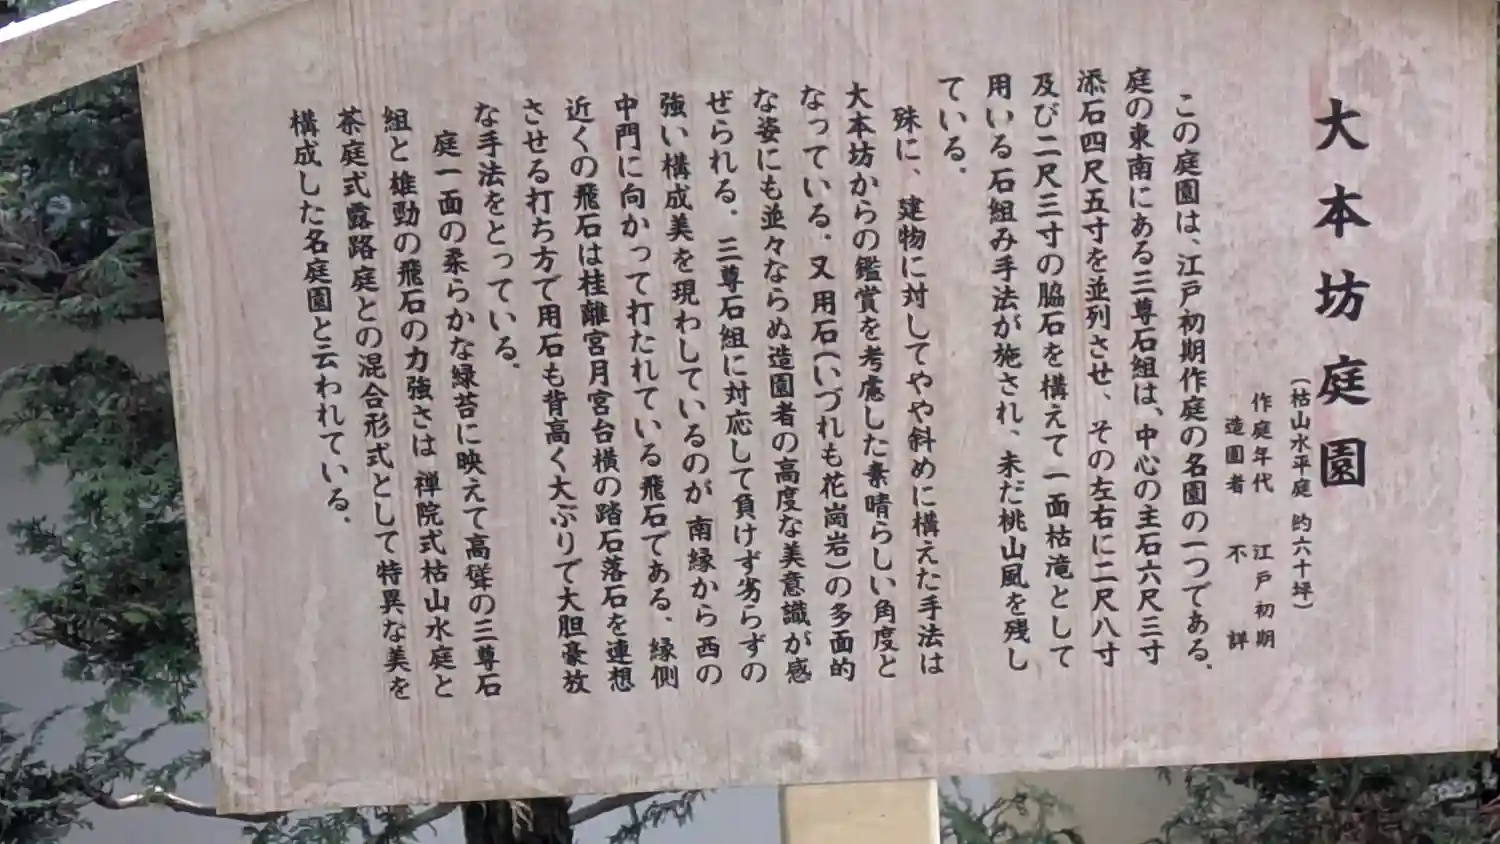 大本坊庭園
（枯山水平庭 約六十坪）
作庭年代 江戸初期
造園者 不詳
この庭園は、江戸初期作庭の名園の一つである．
庭の東南にある三尊石組は、中心の主石六尺三寸
添石四尺五寸を並列させ、その左右に二尺八寸
及び二尺三寸の脇石を構えて一面枯滝として
用いる石組み手法が施され、未だ桃山風を残し
ている．
殊に、建物に対してやや斜めに構えた手法は
大本坊からの鑑賞を考慮した素晴らしい角度と
なっている．又用石（いづれも花崗岩）の多面的
な姿にも並々ならぬ造園者の高度な美意識が感
ぜられる．三尊石組に対応して負けず劣らずの
強い構成美を現わしているのが 南縁から 西の
中門に向かって打たれている飛石である．縁側
近くの飛石は桂離宮月宮台横の踏石落石を連想
させる打ち方で用石も背高く大ぶりで大胆豪放
な手法をとっている．
庭一面の柔らかな緑苔に映えて高聳の三尊石
組と雄勁の飛石の力強さは 禅院式枯山水庭と
茶庭式露路庭との混合形式として特異な美を
構成した名庭園と云われている．